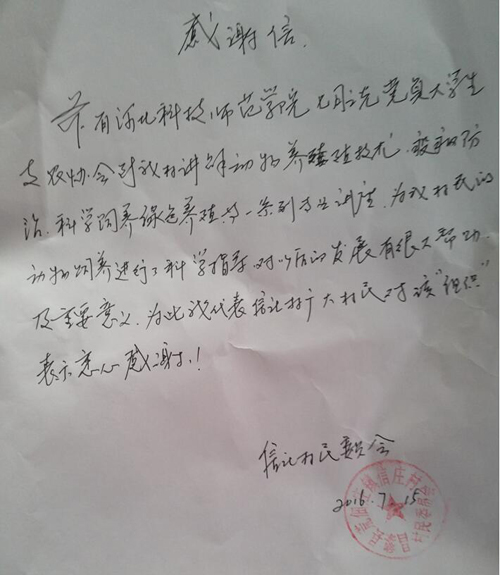 感谢信
兹有河北科技师范学院 党员大学生
支农协会对我村讲解动物养殖技术、疫病防
治、科学饲养绿色养殖等一系列专业讲座,为我村民的
动物饲养进行了科学指导,对以后的发展有很大帮助
及重要意义,为此我代表信庄村广大村民对该“组织”
表示衷心感谢!
信庄村民委员会
2016.7.15
信庄村